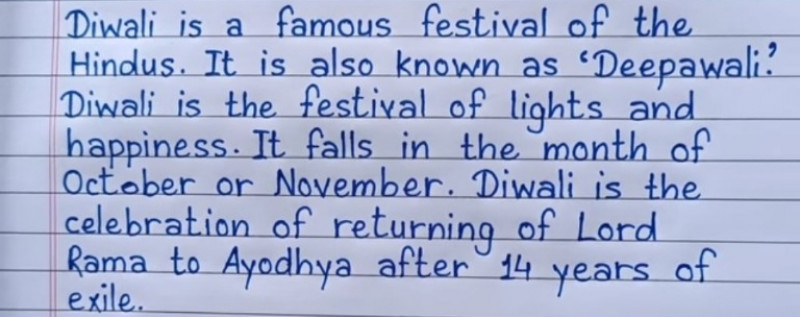 Diwali is a famous festival of the
Hindus. It is also known as ‘Deepawali’.
Diwali is the festival of lights and
happiness. It falls in the month of
October or November. Diwali is the
celebration of returning of Lord
Rama to Ayodhya after 14 years of
exile.